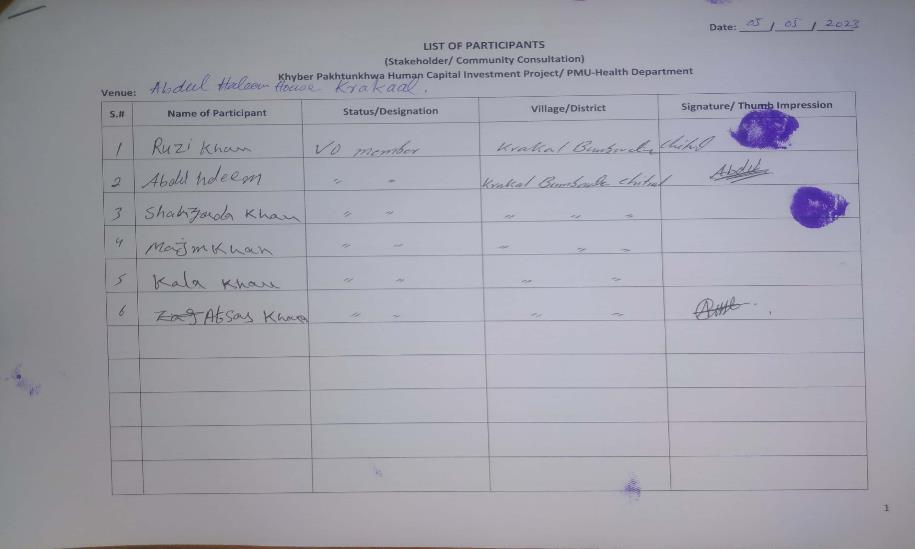 Date: 05 / 05 / 2023
LIST OF PARTICIPANTS
(Stakeholder/ Community Consultation)
Khyber Pakhtunkhwa Human Capital Investment Project/ PMU-Health Department
Venue: Abdul Haleem House Krakaal.
S.# Name of Participant Status/Designation Village/District Signature/ Thumb Impression
1 Ruzi Khan VO member Krakal Chitral
2 Abdul " " Krakal Chitral
3 Khan " " " " "
4 Khan " " " " "
5 Kala Khan " " " "
6 Khan " " " "
1